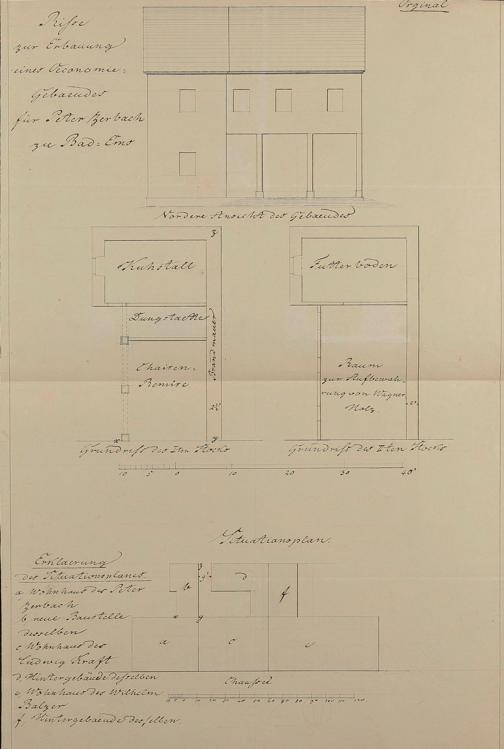 Orginal
Risse
zur Erbauung
eines Oeconomie-
Gebaeudes
für Peter Zerbach
zu Bad-Ems
Vordere Ansicht des Gebaeudes
Kuhstall
Dungstaette
Chaisen-
Remise
Brandmauer
Futterboden
Raum
zur Aufbewah-
rung von Wagner
Holz
Grundriss des Iten Stocks
Grundriss des IIten Stocks
10 5 0 10 20 30 40'
Situationsplan.
Erklaerung
des Situationsplanes
a, Wohnhaus des Peter
Zerbach
b neue Baustelle
desselben
c Wohnhaus des
Ludwig Kraft
d, Hintergebäude desselben
e, Wohnhaus des Wilhelm
Balzer
f, Hintergebaeude desselben.
b
d
f
a
c
x
y
Chaussee